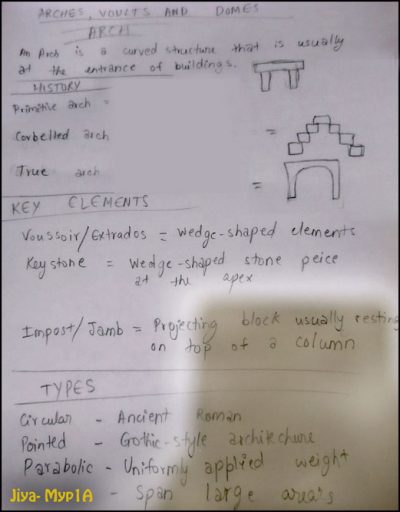 ARCHES, VOULTS AND DOMES
ARCH
An Arch is a curved structure that is usually
at the entrance of buildings.
HISTORY
Primitive arch =
Corbelled arch =
True arch =
KEY ELEMENTS
Voussoir/Extrados = Wedge-shaped elements
Keystone = Wedge-shaped stone peice
at the apex
Impost/Jamb = Projecting block usually resting
on top of a column
TYPES
Circular - Ancient Roman
Pointed - Gothic-style architechure
Parabolic - Uniformly applied weight
- Span large areas
Jiya- Myp1A